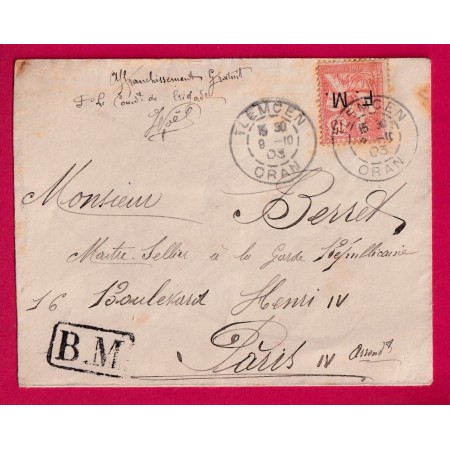 Affranchissement Gratuit
P. Le Comdt. de brigade
Noël
TLEMCEN
15 30
9 -10
03
ORAN
F. M.
15
TLEMCEN
15 30
9 -10
03
ORAN
Monsieur Berret
Maitre-Sellier à la Garde Républicaine
16 Boulevard Henri IV
Paris IV Arrondt
B.M